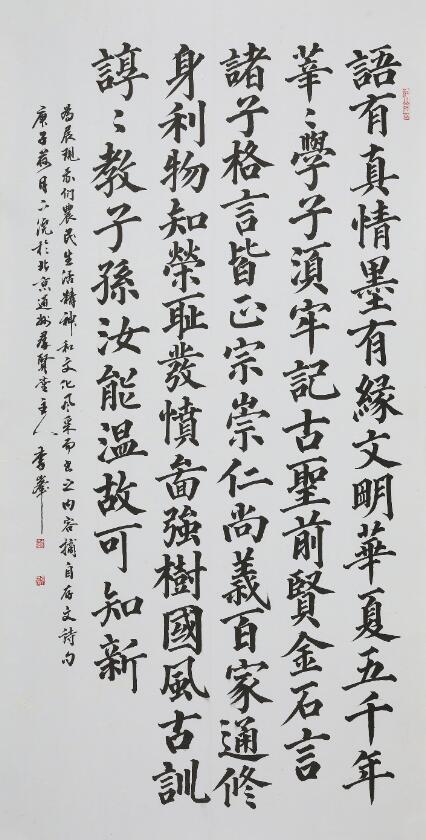 語有真情墨有緣文明華夏五千年
莘〻學子須牢記古聖前賢金石言
諸子格言皆正宗崇仁尚義百家通修
身利物知榮恥發憤啚強樹國風古訓
諄〻教子孫汝能温故可知新
為展現我们農民生活精神和文化風采而书之内容摘自存文詩句
庚子夏月下浣於北京通州尋賢堂主人李峯